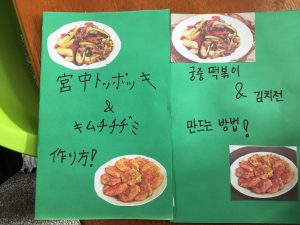 宮中トッポッキ
&
キムチチヂミ
作り方!
궁중 떡볶이
& 김치전
만드는 방법!